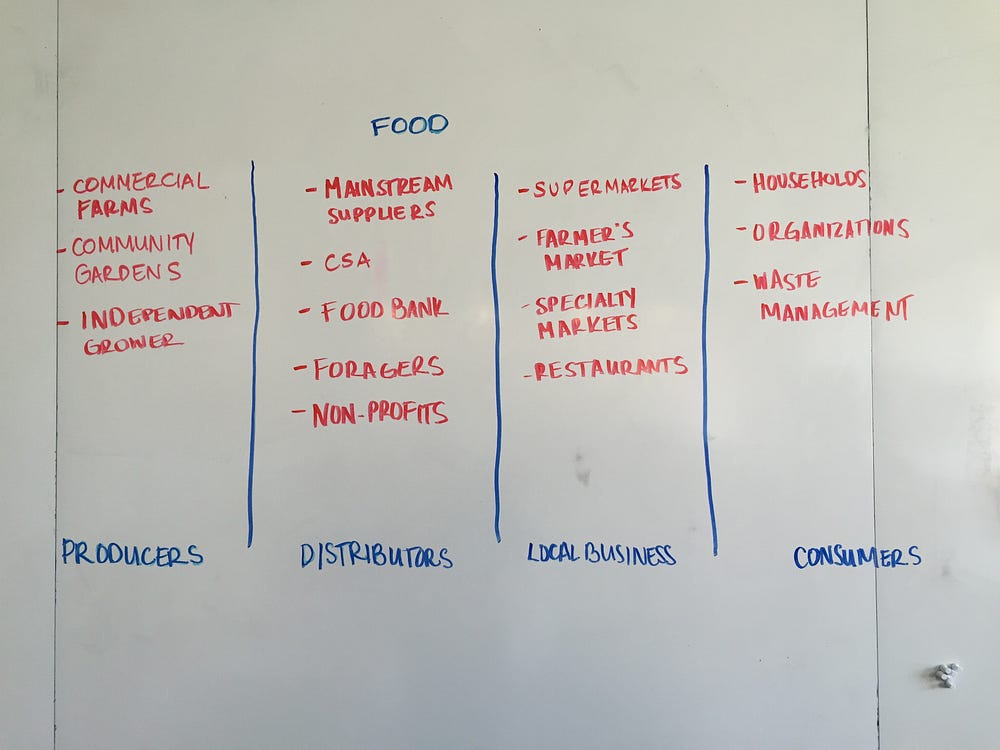 FOOD
- COMMERCIAL
FARMS
- COMMUNITY
GARDENS
- INDEPENDENT
GROWER
- MAINSTREAM
SUPPLIERS
- CSA
- FOOD BANK
- FORAGERS
- NON-PROFITS
- SUPERMARKETS
- FARMER'S
MARKET
- SPECIALTY
MARKETS
- RESTAURANTS
- HOUSEHOLDS
- ORGANIZATIONS
- WASTE
MANAGEMENT
PRODUCERS
DISTRIBUTORS
LOCAL BUSINESS
CONSUMERS